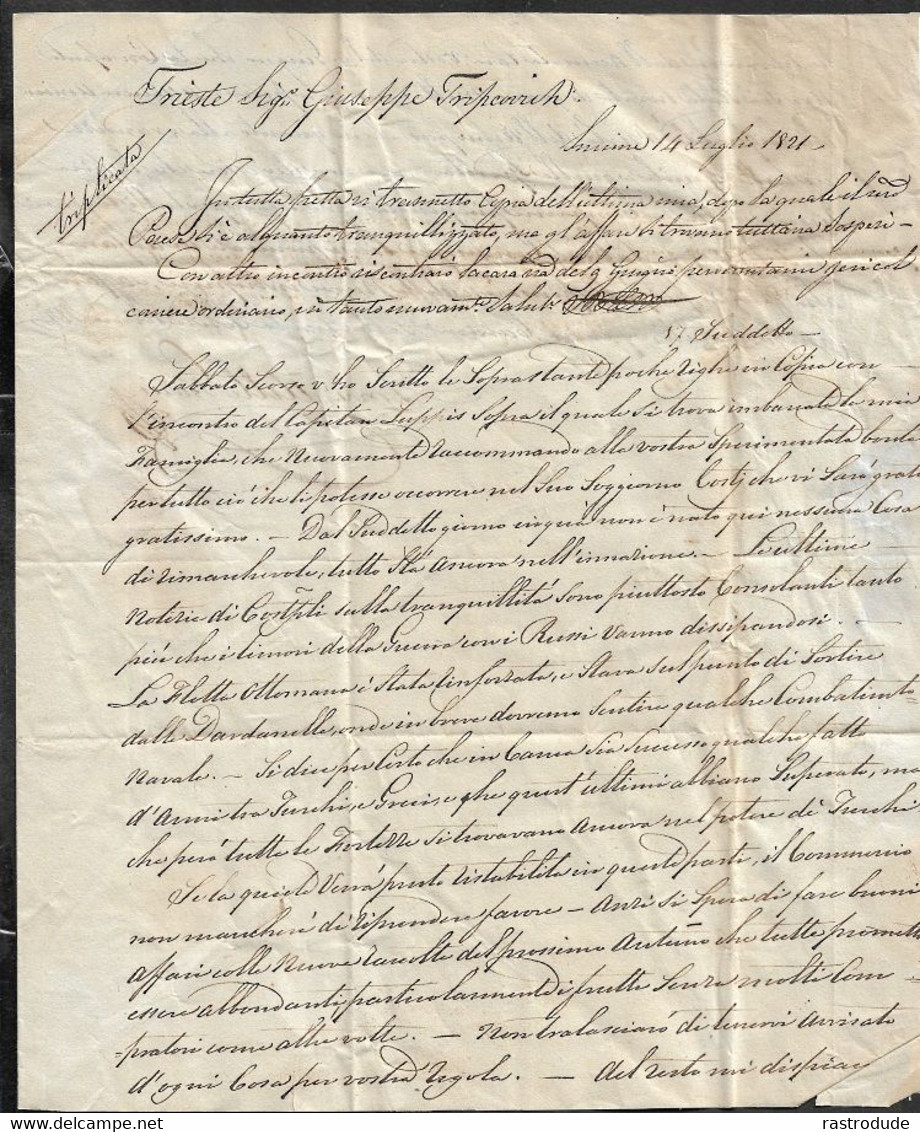 Trieste Sigr. Giuseppe Tripcovich.
Smirne 14 Luglio 1821
triplicata
In tutta fretta vi trasmetto Copia dell'ultima mia, dopo la quale il
Paese si è alquanto tranquillizzato, ma gl'affari si trovano tuttavia Sospesi -
Con altro incontro riscontrarò la cara del 9 Giugno
ordinario, in tanto Salut.
17 Suddetto -
Sabbato Scorso v'ho Scritto le Soprastanti poche righe in Copia con -
l'incontro del Capitan Luppis Sopra il quale Si trova imbarcata la mia
Famiglia, che Nuovamente raccommando alla vostra Sperimentata bontà
per tutto ciò che li potesse occorrere nel Suo Soggiorno Costì che vi Sarò grat
gratissimo. - Dal Suddetto giorno in quà non è nato qui nessuna Cosa
di rimarchevole, tutto Stà Ancora nell'innazione. - Le ultime
Notizie di Costpli sulla tranquillità Sono piuttosto Consolanti tanto
più che i timori della Guerra con i Russi Vanno dissipandosi. -
La Flotta Ottomana è Stata Rinforzata, e Stava Sul punto di Sortire
dalli Dardanelli, onde in breve dovremo Sentire qualche Combatimto
Navale. - Si dice per Certo che in Canea Sia Successo qualche fatto
d'Armi tra Turchi, e Greci, e che quest'ultimi abbiano Superato, ma
che però tutte le Fortezze Si trovavano Ancora nel potere di Turchi
Se la quiete Verrà presto ristabilita in queste parti, il Commercio
non mancherà di riprendere favore - Anzi Si Spera di fare buoni
affari colle Nuove raccolte del prossimo Autuño che tutte promett
essere abbondanti, particolarmente i frutti Senza molti Com
=pratori come altre volte. - Non tralasciarò di tenervi Avvisato
d'ogni Cosa per vostra regola. - Del resto mi dispiac
rastrodude